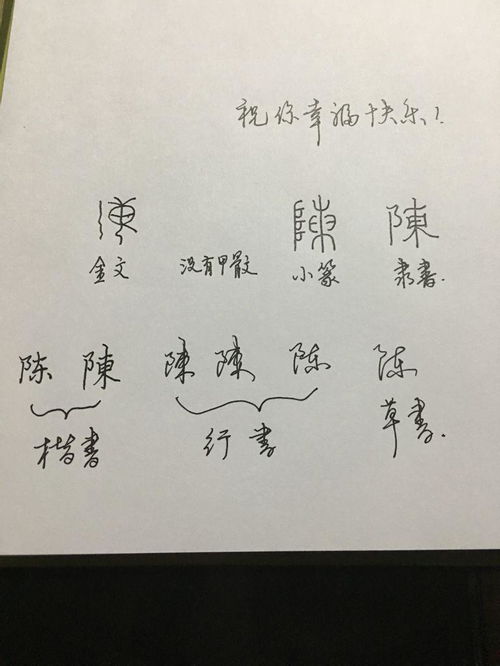 祝你幸福快乐!
陳 陳 陳
金文 没有甲骨文 小篆 隶书.
陈 陳 陳 陳 陈 陈
楷书 行书 草书.